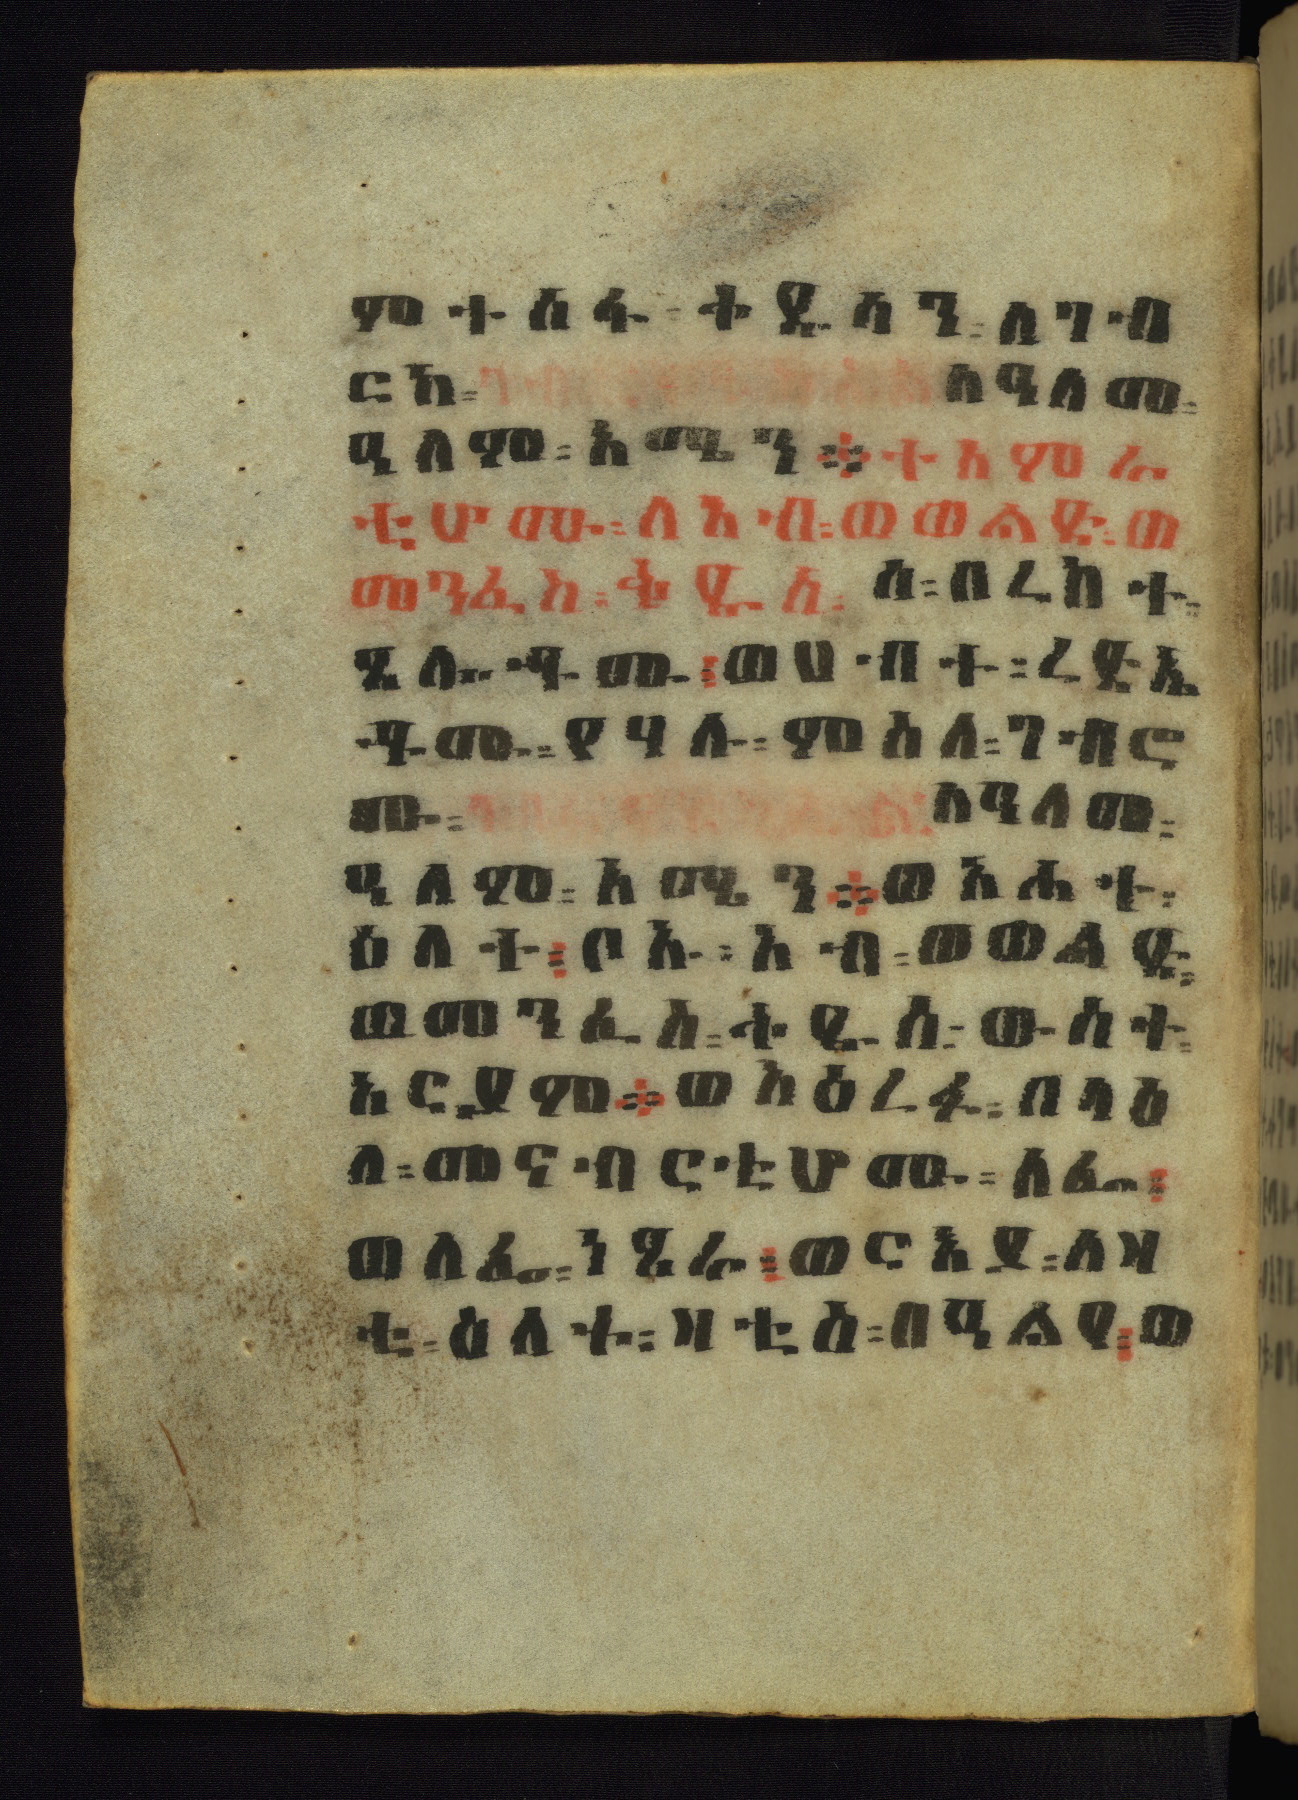 ምተስፋ፡ ለግብ
ርከ፡ ለዓለመ፡
ዓለም፡ አሜን። ተአምሪ
ቲሆሙ፡ ለአብ፡ ወወልድ፡ ወ
መንፈስ፡ ቅዱስ፡ ስ፡ በረከተ፡
ጸሎቶሙ፡ ወሀብተ፡ ረድኤ
ቶሙ፡ የሃሉ፡ ምስለ፡ ገብሮ
ሙ፡ ለዓለመ፡
ዓለም፡ አሜን። ወአሐተ፡
ዕለተ፡ ቦኡ፡ አብ፡ ወወልድ፡
ወመንፈስ፡ ቅዱስ፡ ውስተ፡
አርያም። ወአዕረፉ፡ በላዕ
ለ፡ መናብርቲሆሙ፡ ለፌ፡
ወለፌ፡ ነጺሮ፡ ወርእየ፡ ለዛ
ቲ፡ ዕለት፡ ዛቲስ፡ በዓልየ፡ ወ